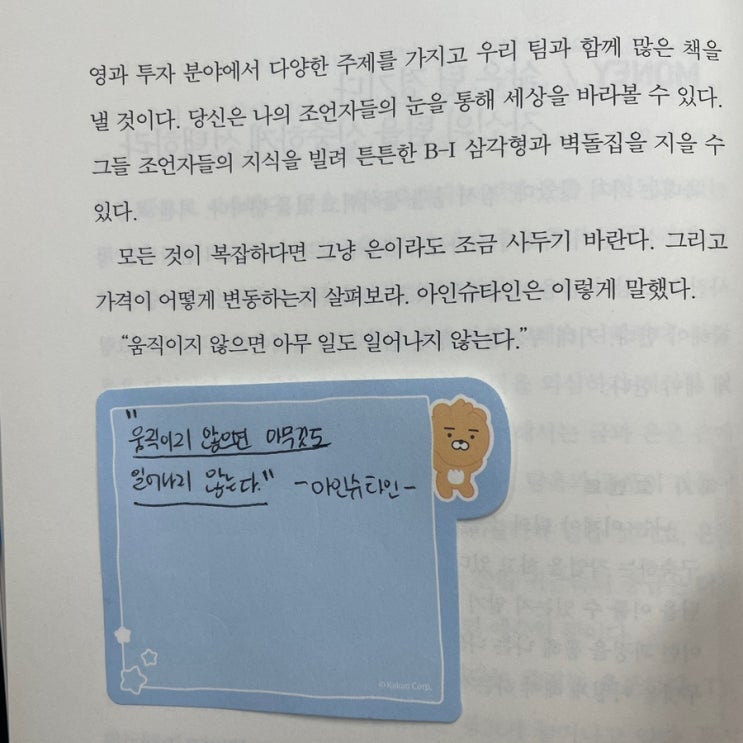 영과 투자 분야에서 다양한 주제를 가지고 우리 팀과 함께 많은 책을
낼 것이다. 당신은 나의 조언자들의 눈을 통해 세상을 바라볼 수 있다.
그들 조언자들의 지식을 빌려 튼튼한 B-I 삼각형과 벽돌집을 지을 수
있다.
모든 것이 복잡하다면 그냥 은이라도 조금 사두기 바란다. 그리고
가격이 어떻게 변동하는지 살펴보라. 아인슈타인은 이렇게 말했다.
“움직이지 않으면 아무 일도 일어나지 않는다.”
"움직이지 않으면 아무것도
일어나지 않는다." -아인슈타인-
© Kakao Corp.